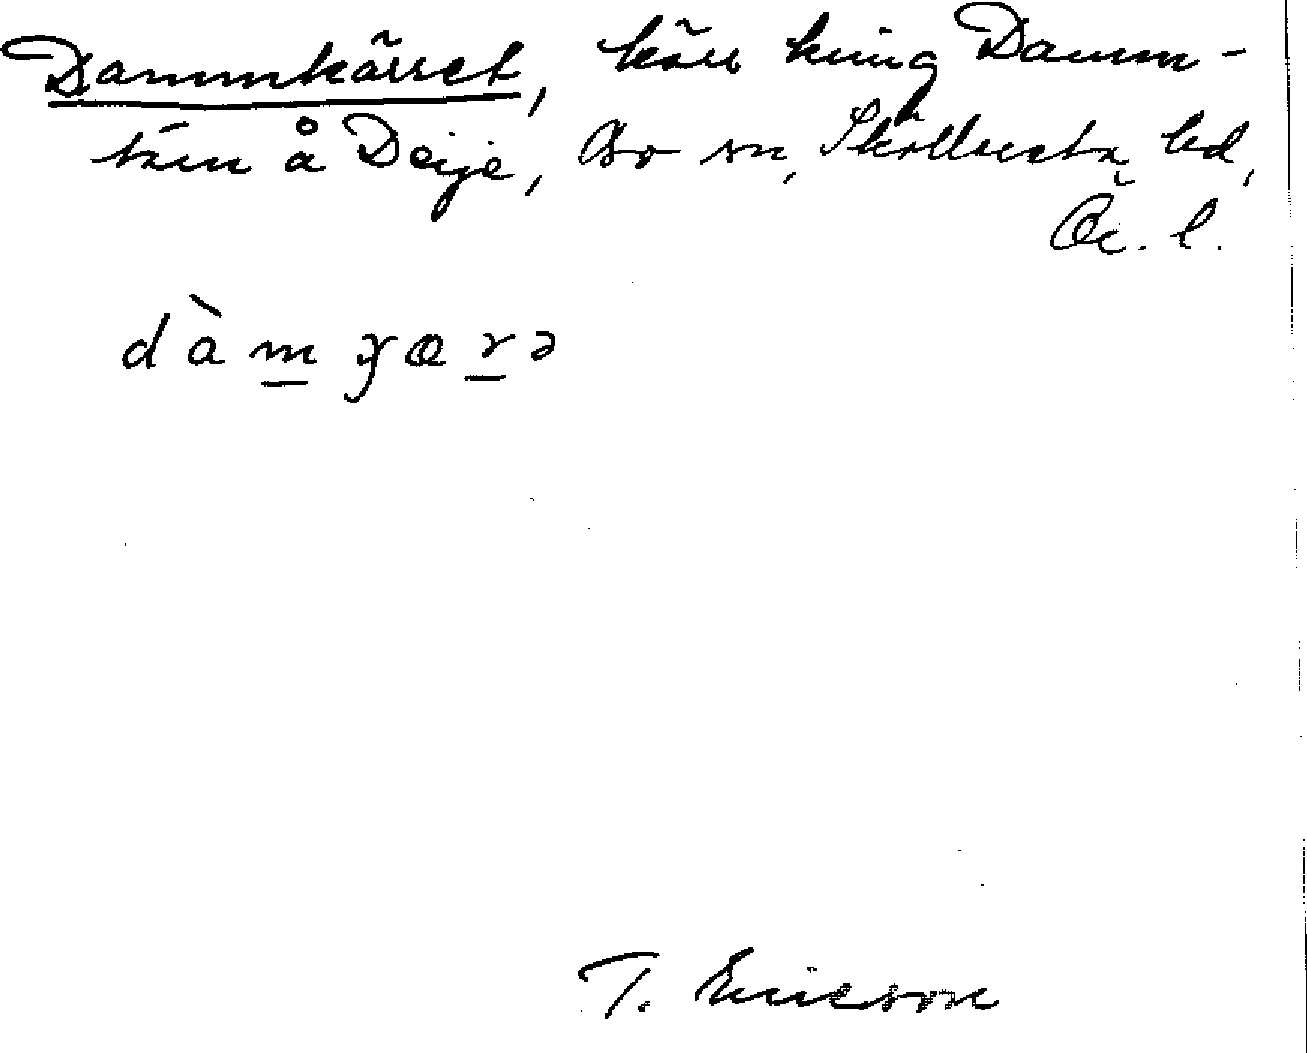 Dammkärret, kärr kring Damm-
tärn å Deije, Bo sn, Sköllersta hd,
Ör. l.
dàm̲ȷœr̲ə
T. Ericson